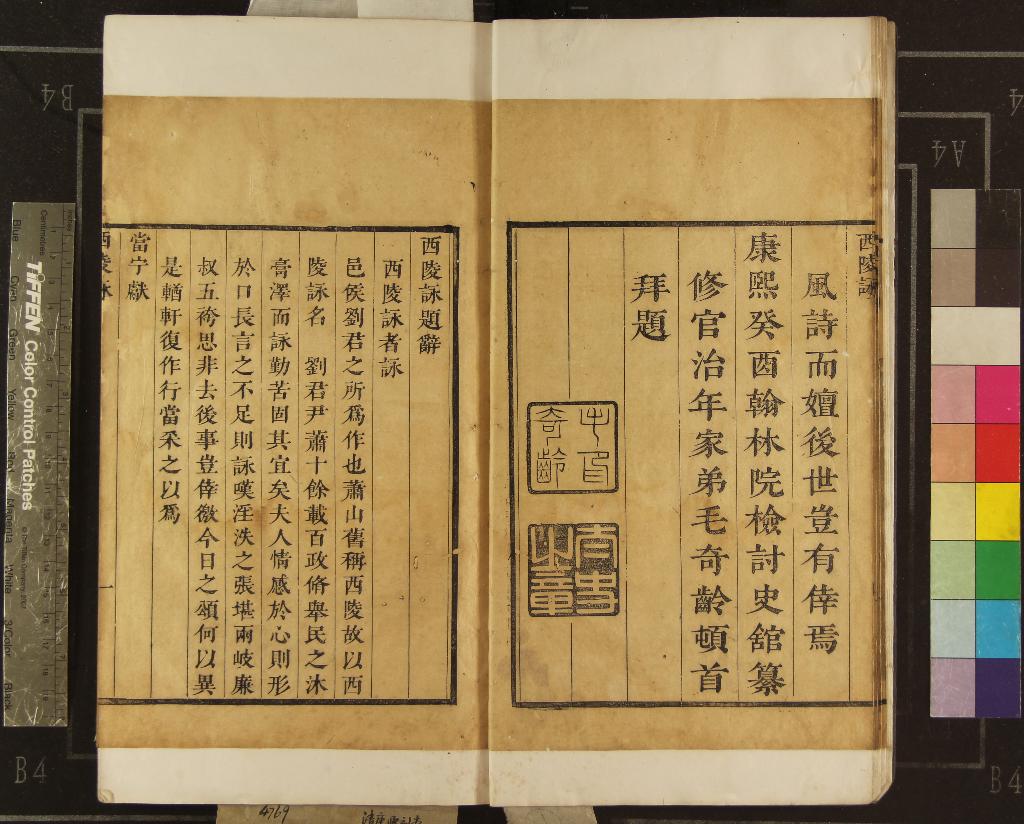 西陵詠
風詩而嬗後世豈有倖焉
康熙癸酉翰林院檢討史舘纂
修官治年家弟毛奇齡頓首
拜題
西陵詠題辭
西陵詠者詠
邑侯劉君之所爲作也蕭山舊稱西陵故以西
陵詠名 劉君尹蕭十餘載百政脩舉民之沐
膏澤而詠勤苦固其宜矣夫人情感於心則形
於口長言之不足則詠嘆滛泆之張堪兩岐廉
叔五袴思非去後事豈倖徼今日之頌何以異
是輶軒復作行當采之以爲
當宁獻
西陵詠
一
B4
A4
B4
B4
TIFFEN Color Control Patches
Centimetres
Blue
Cyan
Green
Yellow
Red
Magenta
White
3/Color
Black
4769